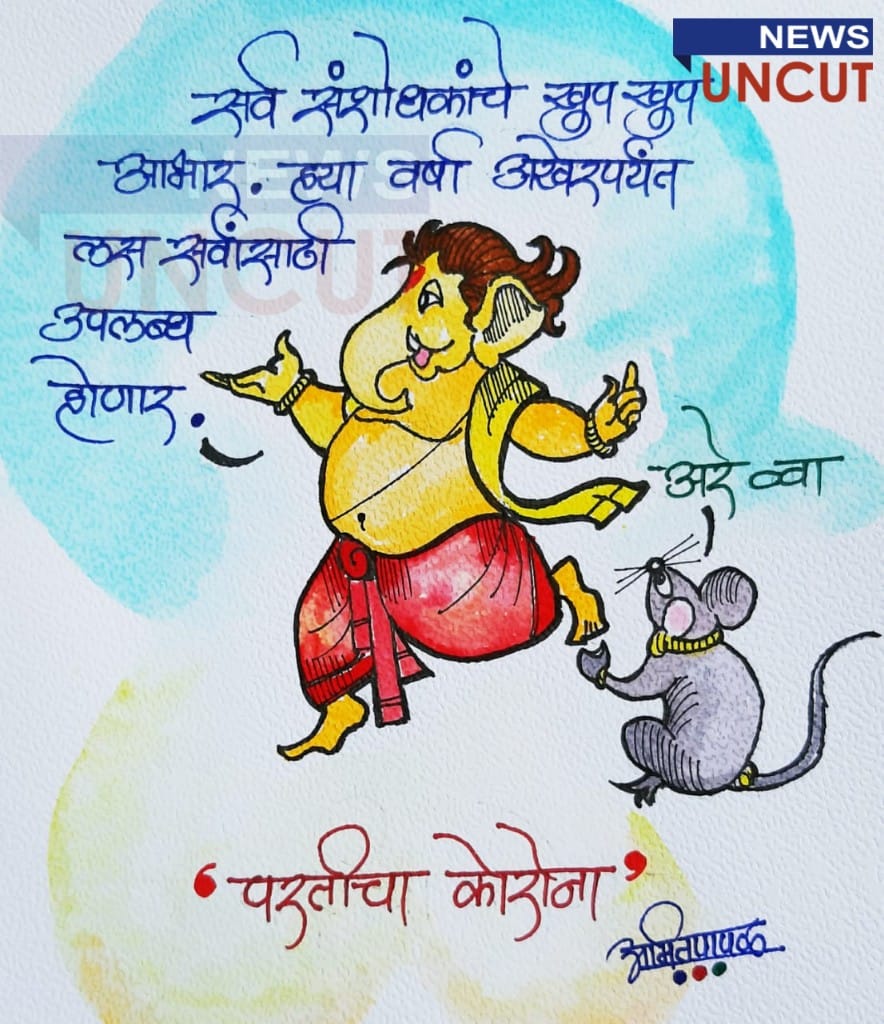 NEWS
UNCUT
सर्व संशोधकांचे खुप खुप
आभार. ह्या वर्षा अखेरपर्यंत
लस सर्वांसाठी
उपलब्ध
होणार.
अरे व्वा
'परतीचा कोरोना'
अमित पापळ
NEWS
UNCUT